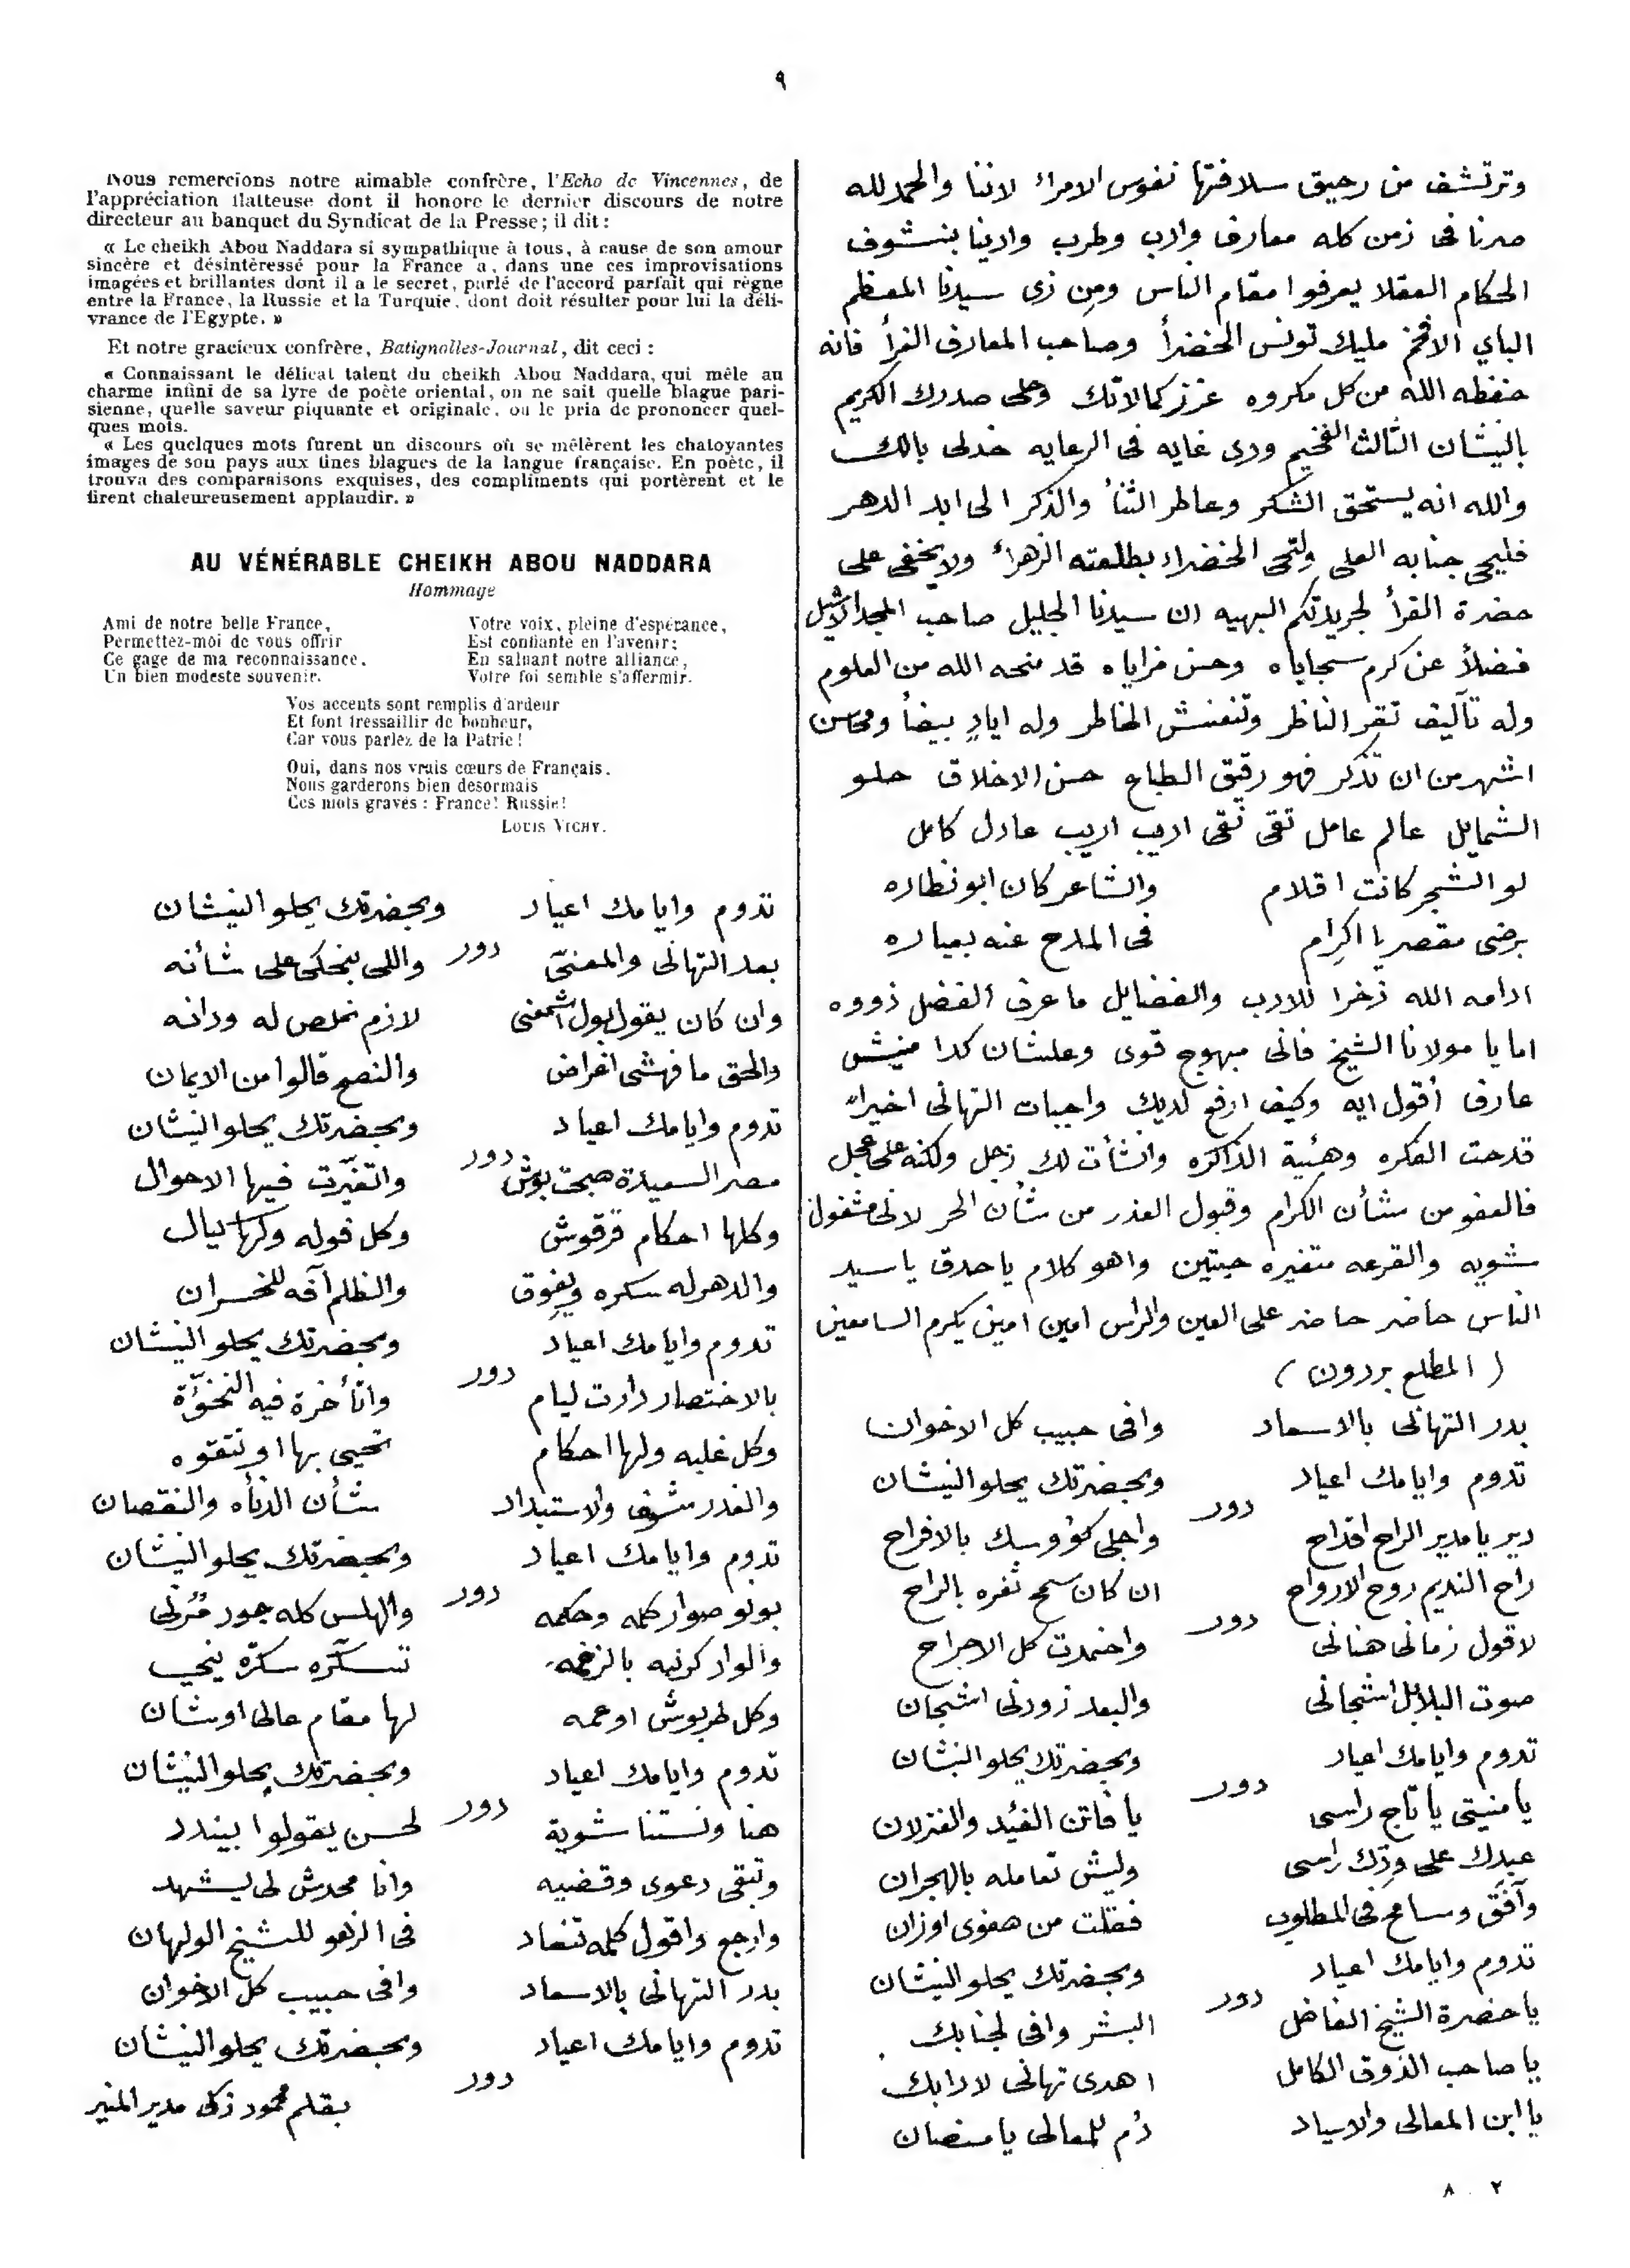 ٩
وترتشف من رحيق سلافتها نفوس الامراء لاننا والحمد لله
صرنا فى زمن كله معارف وادب وطرب وادينا بنشوف
الحكام العقلا يعرفوا مقام الناس ومن زى سيدنا المعظم
الباي الافخم مليك تونس الخضرأ وصاحب المعارف الغرأ فانه
حفظه الله من كل مكروه عزز كمالاتك وحلى صدرك الكريم
بالنيشان الثالث الفخيم ودى غايه فى الرعايه خدلى بالك
والله انه يستحق الشكر وعاطر الثنأ والذكر الى ابد الدهر
فليحى جنابه العلى ولتحى الخضراء بطلعته الزهراء ولا يخفى على
حضرة القرأ لجريدتكم البهيه ان سيدنا الجليل صاحب المجد الاثيل
فضلاً عن كرم سجاياه وحسن مزاياه قد منحه الله من العلوم
وله تآليف تقر الناظر وتنعنش الخاطر وله ايادٍ بيضأ ومحاسن
اشهر من ان تذكر فهو رقيق الطباع حسن الاخلاق حلو
الشمايل عالم عامل تقى نقى اديب اريب عادل كامل
لو الشجر كانت اقلام والشاعر كان ابو نظاره
برضى مقصر يا اكرام فى المدح عنه بعباره
ادامه الله ذخرا للادب والفضايل ما عرف الفضل ذووه
اما يا مولانا الشيخ فانى مبهوج قوى وعلشان كدا منيش
عارف أقول ايه وكيف ارفع لديك واجبات التهانى اخيراً
قدحت الفكره وهيئة الذاكره وانشأت لك زجل ولكنه على عجل
فالعفو من شأن الكرام وقبول العذر من شأن الحر لانى مشغول
شويه والقرعه متغيره حبتين واهو كلام يا حدق يا سيد
الناس حاضر حاضر على العين والراس امين امين يكرم السامعين
( المطلع بردون )
بدر التهانى بالاسعاد وافى حبيب كل الاخوان
تدوم وايامك اعياد وبحضرتك يحلو النيشان
دور
دير يا مدير الراح اقداح واجلى كؤوسك بالافراح
راح النديم روح الارواح ان كان سمح ثغره بالراح
دور
لاقول زمانى هنانى واخمدت كل الاجراح
صوت البلابل اشجانى والبعد زودنى اشجان
تدوم وايامك اعياد وبحضرتك يحلو النيشان
دور
يا منيتى يا تاج راسى يا فاتن الغيد والغزلان
عبدك على ودك راسى وليش تعامله بالهجران
وآفق وسامح فى المطلوب فقلت من هفوى اوزان
تدوم وايامك اعياد وبحضرتك يحلو النيشان
دور
يا حضرة الشيخ الفاضل البشر وافى لجنابك
يا صاحب الذوق الكامل اهدى تهانى لادابك
يا ابن المعالى والاسياد دُم للمعالى يا منصان
٢ . ٨
Nous remercions notre aimable confrère, l'Echo de Vincennes, de
l'appréciation flatteuse dont il honore le dernier discours de notre
directeur au banquet du Syndicat de la Presse; il dit :
« Le cheikh Abou Naddara si sympathique à tous, à cause de son amour
sincère et désintéressé pour la France a, dans une ces improvisations
imagées et brillantes dont il a le secret, parlé de l'accord parfait qui règne
entre la France, la Russie et la Turquie, dont doit résulter pour lui la déli-
vrance de l'Egypte. »
Et notre gracieux confrère, Batignolles-Journal, dit ceci :
« Connaissant le délicat talent du cheikh Abou Naddara, qui mêle au
charme infini de sa lyre de poète oriental, on ne sait quelle blague pari-
sienne, quelle saveur piquante et originale, on le pria de prononcer quel-
ques mots.
« Les quelques mots furent un discours où se mêlèrent les chatoyantes
images de son pays aux fines blagues de la langue française. En poète, il
trouva des comparaisons exquises, des compliments qui portèrent et le
firent chaleureusement applaudir. »
AU VÉNÉRABLE CHEIKH ABOU NADDARA
Hommage
Ami de notre belle France,
Permettez-moi de vous offrir
Ce gage de ma reconnaissance,
Un bien modeste souvenir.
Votre voix, pleine d'espérance,
Est confiante en l'avenir;
En saluant notre alliance,
Votre foi semble s'affermir.
Vos accents sont remplis d'ardeur
Et font tressaillir de bonheur,
Car vous parlez de la Patrie !
Oui, dans nos vrais cœurs de Français,
Nous garderons bien désormais
Ces mots gravés : France! Russie!
LOUIS VICHY.
تدوم وايامك اعياد وبحضرتك يحلو النيشان
دور
بعد التهانى والمعنى واللى بنحكى على شأنه
وان كان يقول بول اشمعنى لازم نخلص له ودانه
والحق ما فهشى اغراض والنصح قالوا من الايمان
تدوم وايامك اعياد وبحضرتك يحلو النيشان
دور
مصر السعيدة صبحت بوش واتغيّرت فيها الاحوال
وكلها احكام قرقوش وكل قوله وكرها كيال
والدهر له سكره ويفوق والظلم آفه للخسران
تدوم وايامك اعياد وبحضرتك يحلو النيشان
دور
بالاختصار دارت ليام واتأخرة فيه النخوّة
وكل غلبه ولها احكام تحيى بها او تتقوه
والغدر شوف والاستبداد شأن الدنأه والنقصان
تدوم وايامك اعياد وبحضرتك يحلو النيشان
دور
بونو صوار كله وحكمه والهلس كله جود مُرنى
والوار كرنيه بالزخمه تسكّره سكرّة ينجى
وكل طربوش او عمه لها مقام عالى او شان
تدوم وايامك اعياد وبحضرتك يحلو النيشان
دور
هنا ونستنا شوية لحسن يقولوا بيندد
وتبقى دعوى وقضيه وانا محدش لى يشهد
وارجع واقول كلمه تنعاد فى الزهو للشيخ الولهان
بدر التهانى بالاسعاد وافى حبيب كل الاخوان
تدوم وايامك اعياد وبحضرتك يحلو النيشان
دور
بقلم محمود زكى مدير المنير